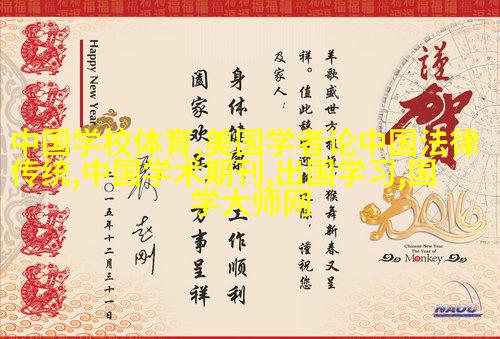 中国学校体育,美国学者论中国法律
传统,中国学术期刊,出国学习,国
学大师网
謹
賀
2016
Chinese New Year
The Year of
Monkey
羊歌盛世方 猴舞新春又呈
祥。值此 际，谨祝您
及家人：
身体健康 工作顺利
阖家欢乐 万事呈祥
赵刚
二〇一五年十二月三十一日
Happy New Year
NAOC